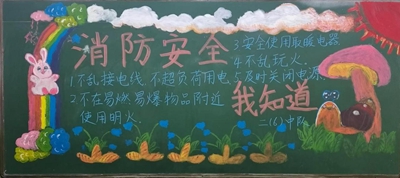 消防安全
1不乱接电线 不超负荷用电
2不在易燃易爆物品附近
使用明火.
3安全使用取暖电器
4不乱玩火.
5及时关闭电源
我知道
二(6)中队